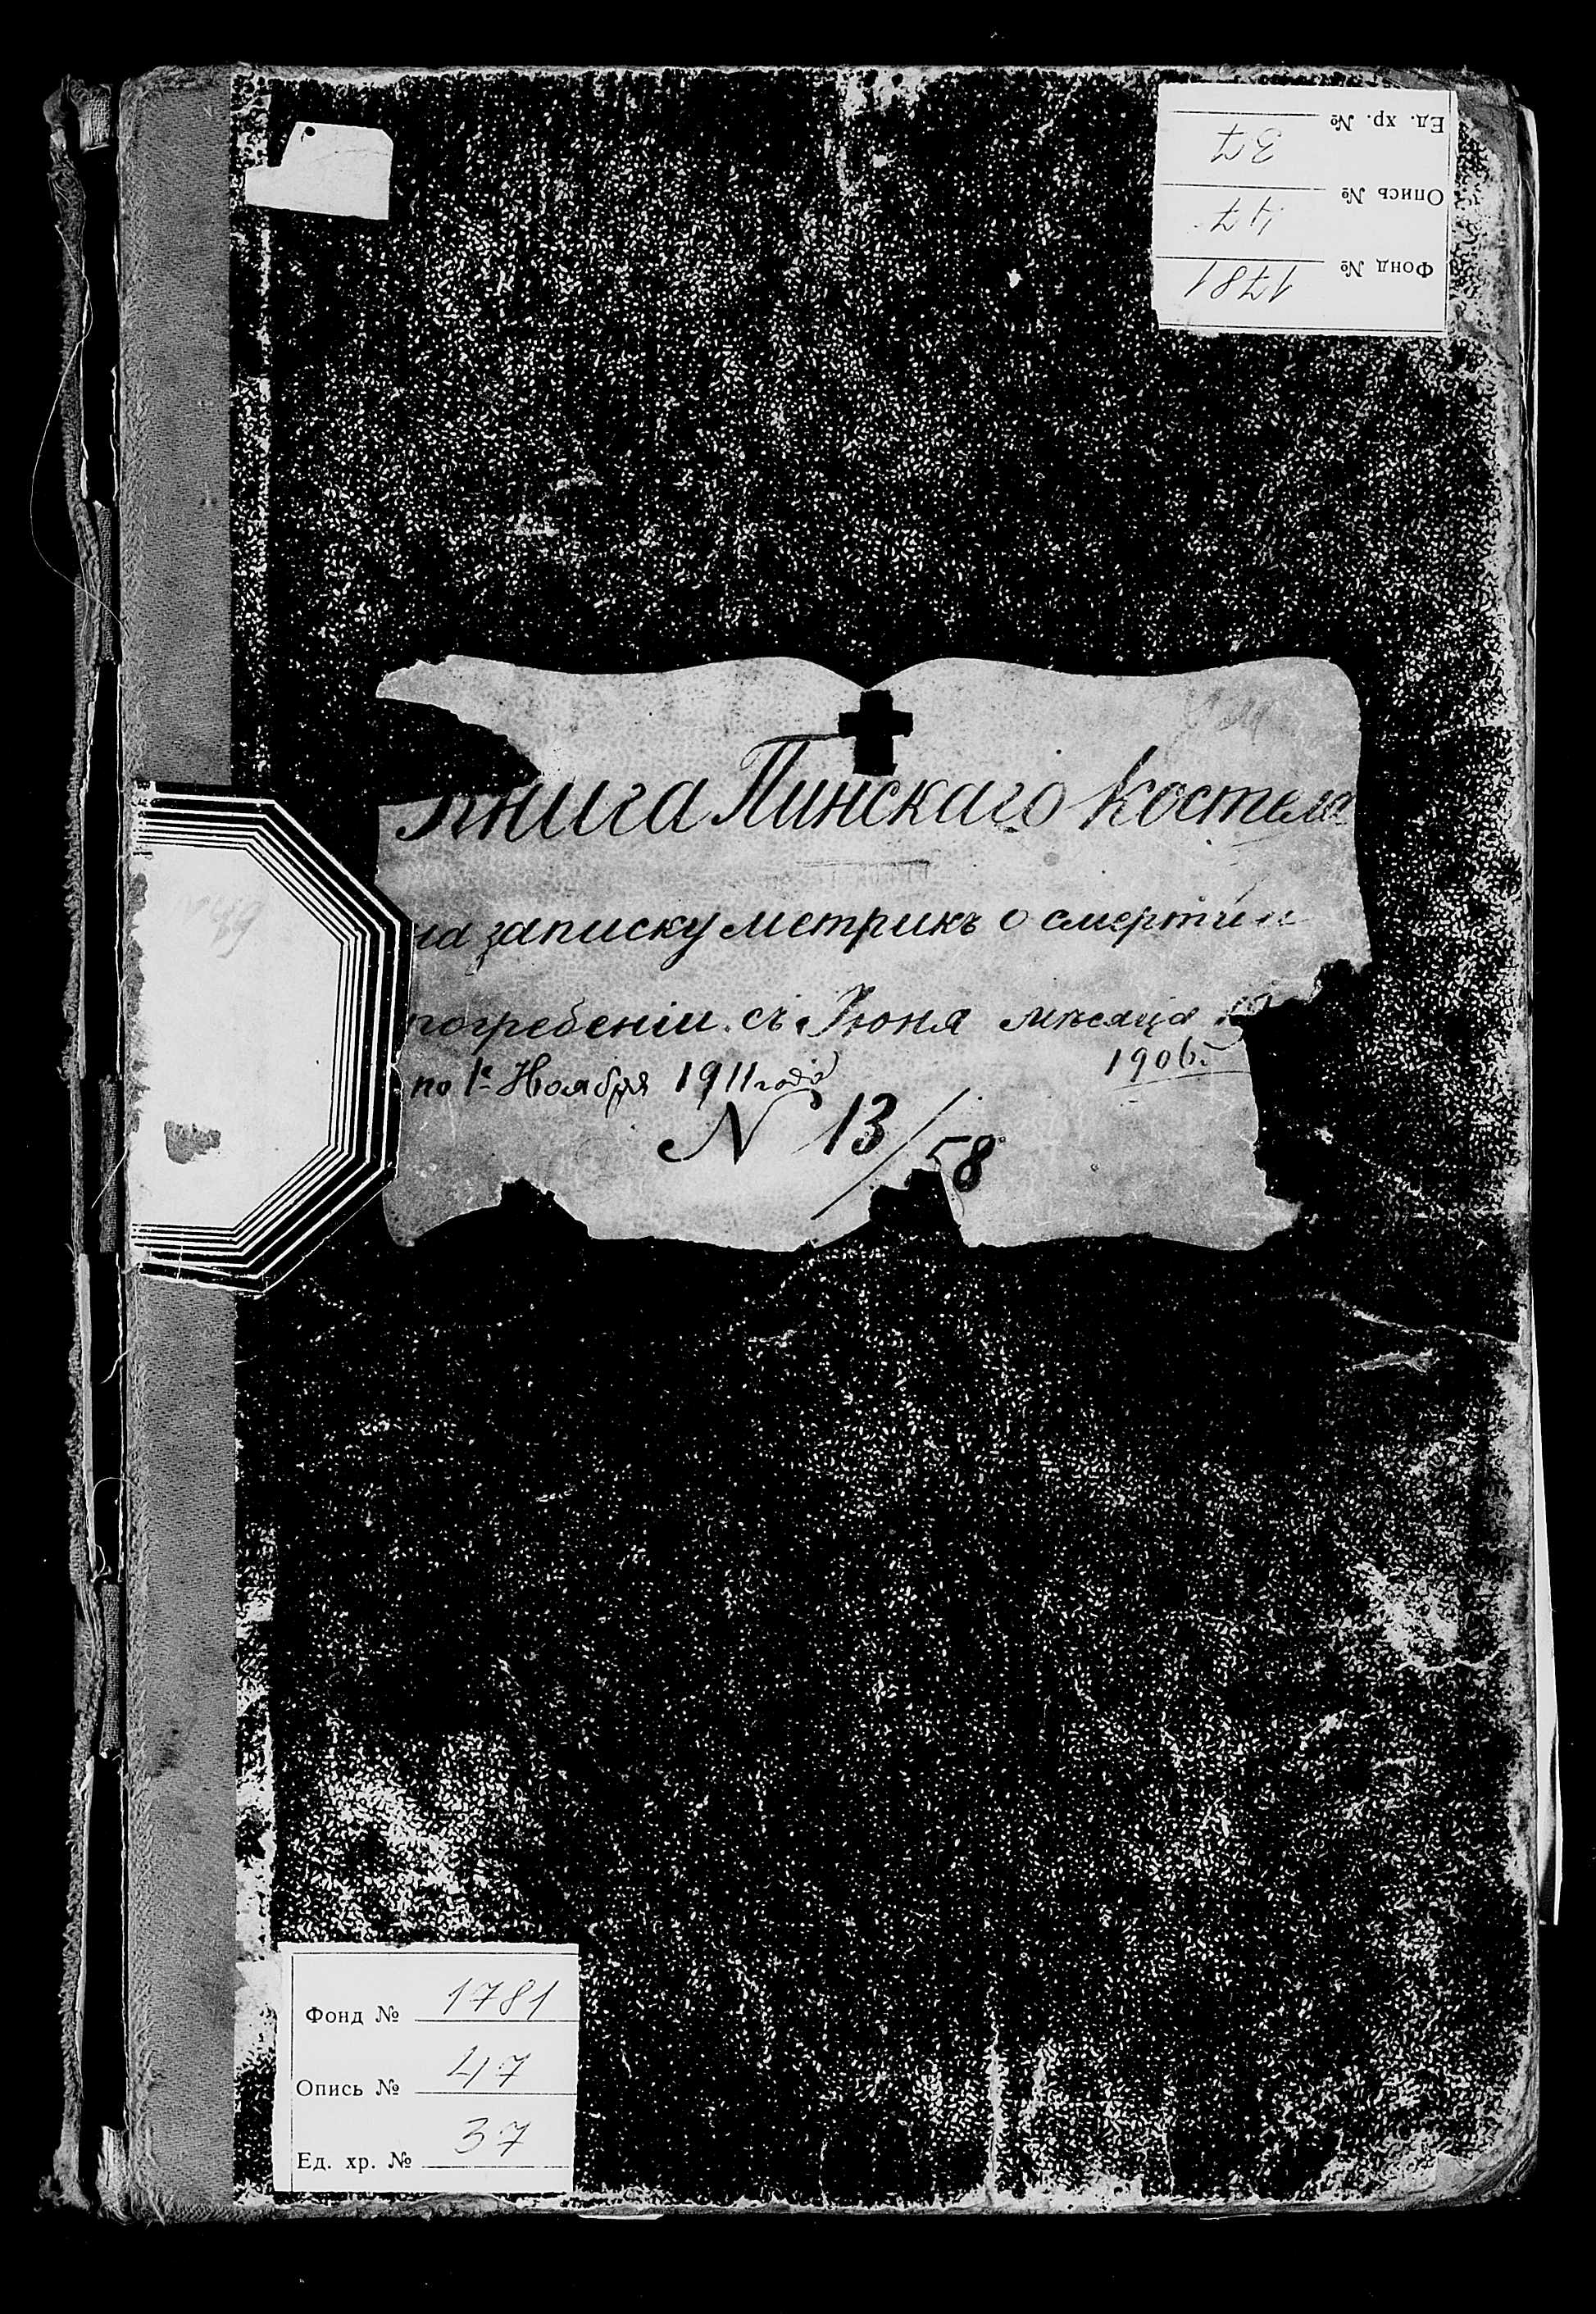 Ед. хр. № 37
Опись № 47
Фонд № 1781
Книга Пинскаго Костела
на записку метрикъ о смерти и
погребеніи съ Іюня мѣсяца
1906 г.
по 1е Ноября 1911 года
N 13/58
Фонд № 1781
Опись № 47
Ед. хр. № 37